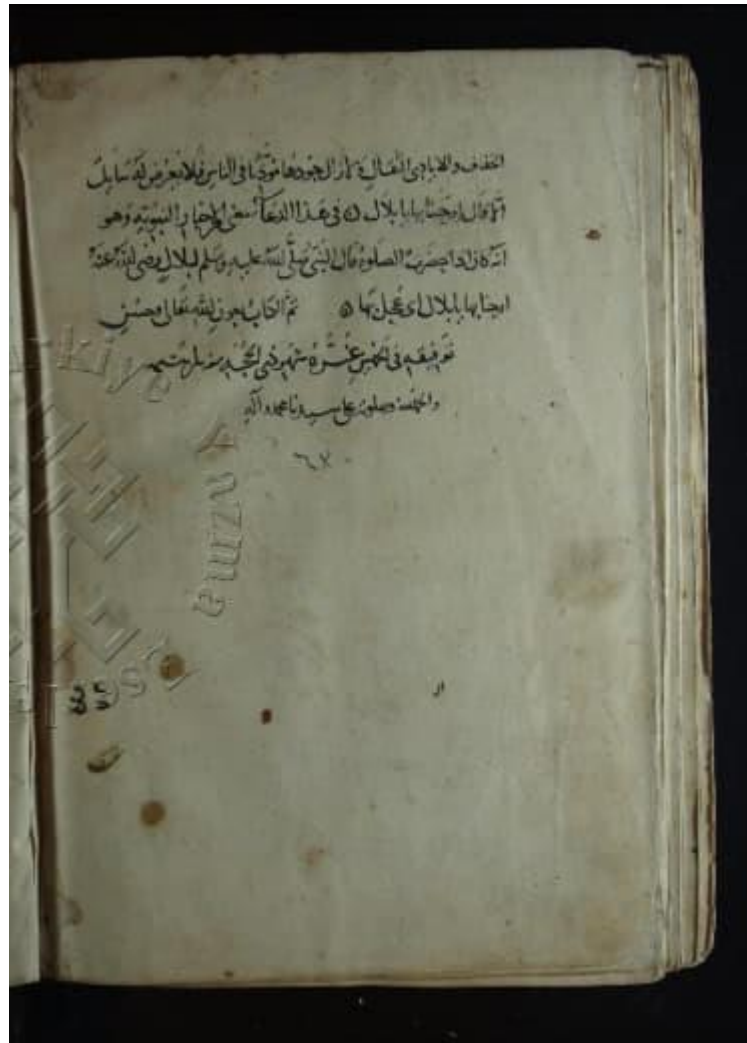 الخفاف والايادى الثقال ۞ ما زال جودها مؤذنا فى الناس فلا تعرض له سايل
الا قال ارحنا بها يا بلال ۞ فى هذا الدعاء معنى الاخبار النبوية وهو
انه كان اذا حضرت الصلوة قال النبى صلى الله عليه وسلم لبلال رضى الله عنه
ارحنا بها يا بلال اى عجل بها ۞ تم الكتاب بعون الله تعالى وحسن
توفيقه فى شهر ذى الحجة
والحمد لله وصلوته على سيدنا محمد وآله
Türkiye Yazma